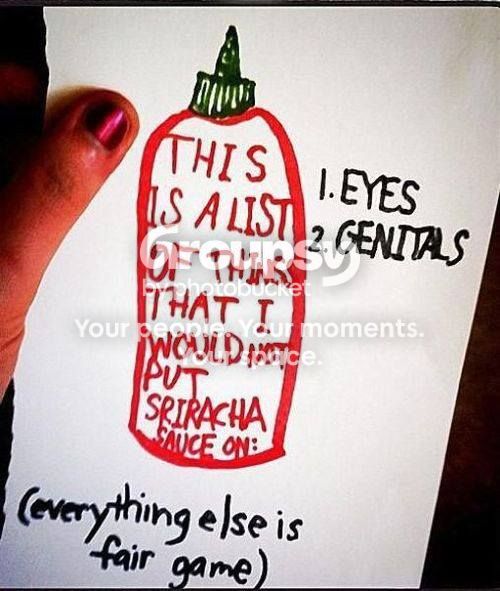 THIS
IS A LIST
OF THINGS
THAT I
WOULD NOT
PUT
SRIRACHA
SAUCE ON:
1. EYES
2. GENITALS
(everything else is
fair game)
Groupsy
by photobucket
Your people. Your moments.
Your space.